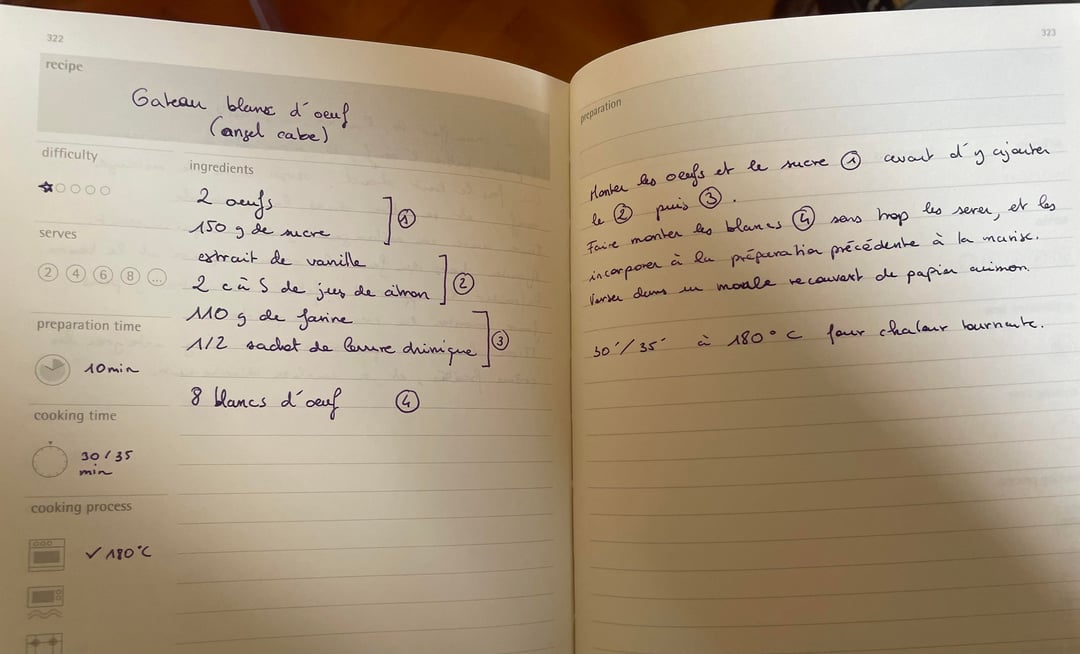 322
recipe
Gateau blanc d'oeuf
(angel cake)
difficulty
serves
2 4 6 8 ...
preparation time
10 min
cooking time
30/35
min
cooking process
✓ 180°C
ingredients
2 oeufs
150 g de sucre ①
extrait de vanille
2 c à S de jus de citron ②
110 g de farine
1/2 sachet de levure chimique ③
8 blancs d'oeuf ④
323
preparation
Monter les oeufs et le sucre ① avant d'y ajouter
le ② puis ③.
Faire monter les blancs ④ sans trop les serer, et les
incorporer à la préparation précédente à la marise.
Verser dans un moule recouvert de papier cuisson.
30'/35' à 180°C four chaleur tournante.